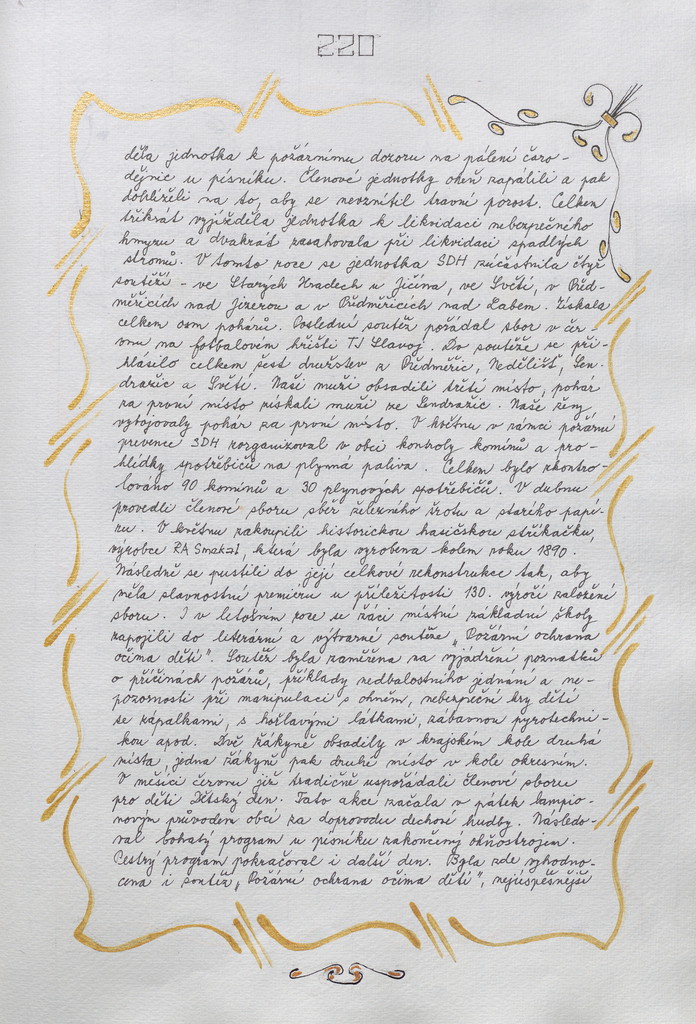 220
děla jednotka k požárnímu dozoru na pálení čaro-
dějnic u písníku. Členové jednotky oheň zapálili a pak
dohlíželi na to, aby se nevznítil travní porost. Celkem
třikrát vyjížděla jednotka k likvidaci nebezpečného
hmyzu a dvakrát zasahovala při likvidaci spadlých
stromů. V tomto roce se jednotka SDH zúčastnila čtyř
soutěží - ve Starých Hradech u Jičína, ve Světí, v Před-
měřicích nad Jizerou a v Předměřicích nad Labem. Získala
celkem osm pohárů. Poslední soutěž pořádal sbor v čer-
vnu na fotbalovém hřišti TJ Slavoj. Do soutěže se při-
hlásilo celkem šest družstev z Předměřic, Nedělišť, Sen-
dražic a Světí. Naši muži obsadili třetí místo, pohár
za první místo získali muži ze Sendražic. Naše ženy
vybojovaly pohár za první místo. V květnu v rámci požární
prevence SDH zorganizoval v obci kontroly komínů a pro-
hlídky spotřebičů na plynná paliva. Celkem bylo zkontro-
lováno 90 komínů a 30 plynových spotřebičů. V dubnu
provedli členové sboru sběr železného šrotu a starého papí-
ru. V květnu zakoupili historickou hasičskou stříkačku,
výrobce RA Smekal, která byla vyrobena kolem roku 1890.
Následně se pustili do její celkové rekonstrukce tak, aby
měla slavnostní premiéru u příležitosti 130. výročí založení
sboru. I v letošním roce se žáci místní základní školy
zapojili do literární a výtvarné soutěže „Požární ochrana
očima dětí". Soutěž byla zaměřena na vyjádření poznatků
o příčinách požárů, příklady nedbalostního jednání a ne-
pozornosti při manipulaci s ohněm, nebezpečné hry dětí
se zápalkami, s hořlavými látkami, zábavnou pyrotechni-
kou apod. Dvě žákyně obsadily v krajském kole druhá
místa, jedna žákyně pak druhé místo v kole okresním.
V měsíci červnu již tradičně uspořádali členové sboru
pro děti Dětský den. Tato akce začala v pátek lampio-
novým průvodem obcí za doprovodu dechové hudby. Následo-
val bohatý program u písníku zakončený ohňostrojem.
Pestrý program pokračoval i další den. Byla zde vyhodno-
cena i soutěž „Požární ochrana očima dětí", nejúspěšnější